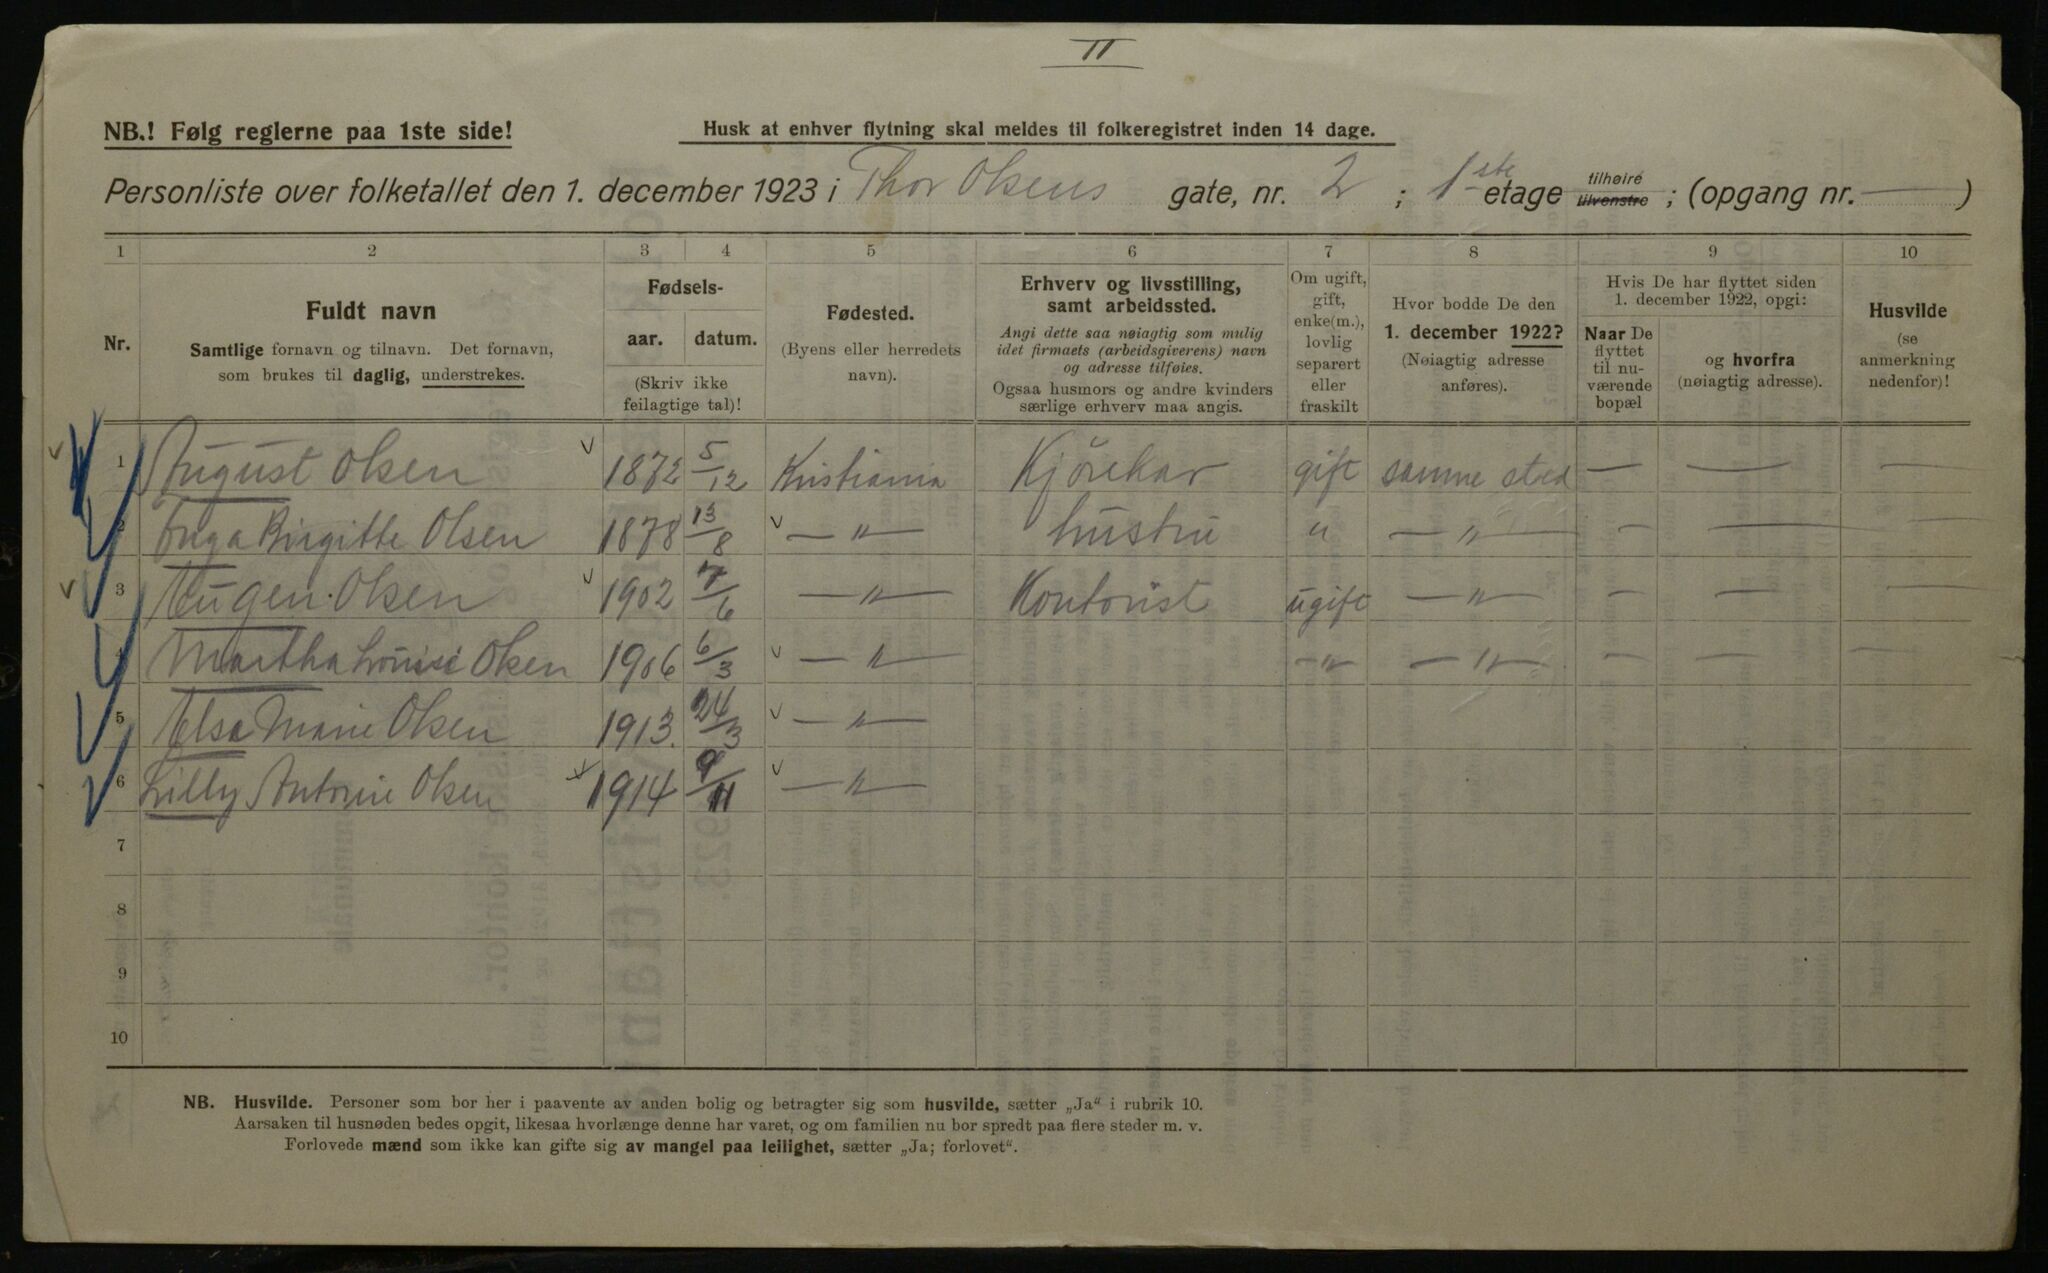 II
NB.! Følg reglerne paa 1ste side!
Husk at enhver flytning skal meldes til folkeregistret inden 14 dage.
Personliste over folketallet den 1. december 1923 i Thor Olsens gate, nr. 2 ; 1ste etage tilhøire tilvenstre ; (opgang nr. — )
1 2 3 4 5 6 7 8 9 10
Nr.
Fuldt navn
Samtlige fornavn og tilnavn. Det fornavn,
som brukes til daglig, understrekes.
Fødsels-
aar. datum.
(Skriv ikke
feilagtige tal)!
Fødested.
(Byens eller herredets
navn).
Erhverv og livsstilling,
samt arbeidssted.
Angi dette saa nøiagtig som mulig
idet firmaets (arbeidsgiverens) navn
og adresse tilføies.
Ogsaa husmors og andre kvinders
særlige erhverv maa angis.
Om ugift,
gift,
enke(m.),
lovlig
separert
eller
fraskilt
Hvor bodde De den
1. december 1922?
(Nøiagtig adresse
anføres).
Hvis De har flyttet siden
1. december 1922, opgi:
Naar De
flyttet
til nu-
værende
bopæl
og hvorfra
(nøiagtig adresse).
Husvilde
(se
anmerkning
nedenfor)!
1 August Olsen 1872 5/12 Kristiania Kjörekar gift samme sted — — —
2 Inga Birgitte Olsen 1878 13/8 — " — hustru " — " — — — —
3 Eugen Olsen 1902 7/6 — " — Kontorist ugift — " — — — —
4 Martha Louise Olsen 1906 6/3 — " — — " — — " — — — —
5 Elsa Marie Olsen 1913. 24/3 — " —
6 Lilly Antonie Olsen 1914 9/11 — " —
7
8
9
10
NB. Husvilde. Personer som bor her i paavente av anden bolig og betragter sig som husvilde, sætter „Ja“ i rubrik 10.
Aarsaken til husnøden bedes opgit, likesaa hvorlænge denne har varet, og om familien nu bor spredt paa flere steder m. v.
Forlovede mænd som ikke kan gifte sig av mangel paa leilighet, sætter „Ja; forlovet“.